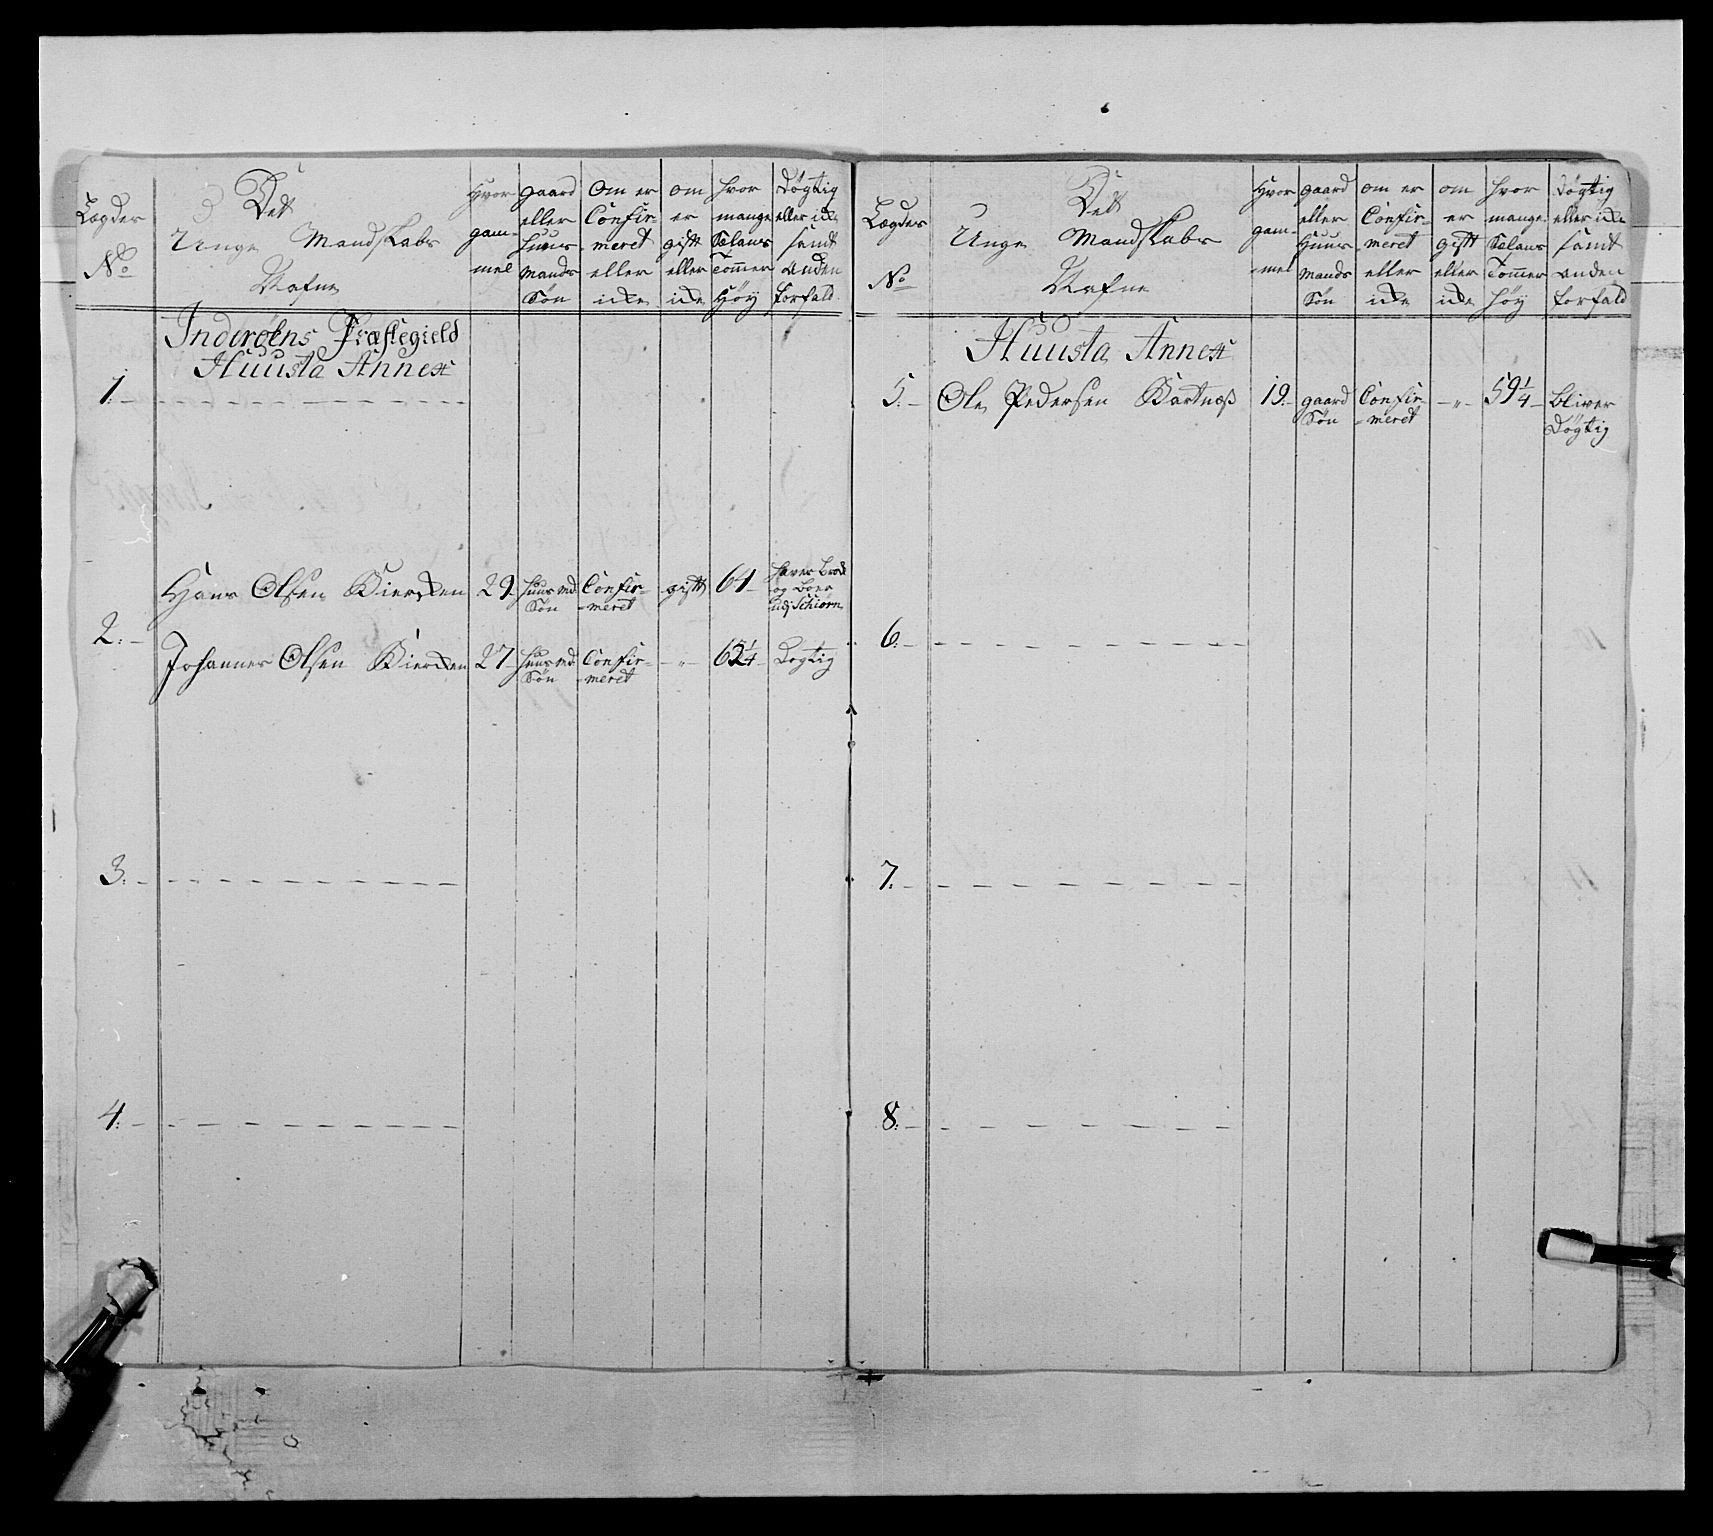 Lægder
No
Det
Unge Mandskabs
Nafne
Hvor
gam-
mel
gaard
eller
Huus
mands
Søn
Om er
Confir-
meret
eller
icke
om
er
gift
eller
icke
hvor
mange
Sælans
Tommer
Høy
Døgtig
eller icke
samt
anden
forfald
Inderøens Præstegield
Huusta Annex
1.
Hans Olsen Kiercken 29 Huusmd Søn Confir-meret gift 64 haver brok og boer
2.
Johannes Olsen Kiercken 27 Huusmd Søn Confir-meret -"- 62 1/4 Dogtig
3.
4.
Lægders
No
Det
Unge Mandskabs
Nafne
Hvor
gam-
mel
gaard
eller
Huus
mands
Søn
om er
Confir-
meret
eller
icke
om
er
gift
eller
icke
hvor
mange
Sælans
Tommer
høy
Døgtig
eller icke
samt
anden
forfald
Huusta Annex
5. Ole Pedersen Kartnæss 19 gaard Søn Confir-meret -"- 59 1/4 bliver Døgtig
6.
7.
8.